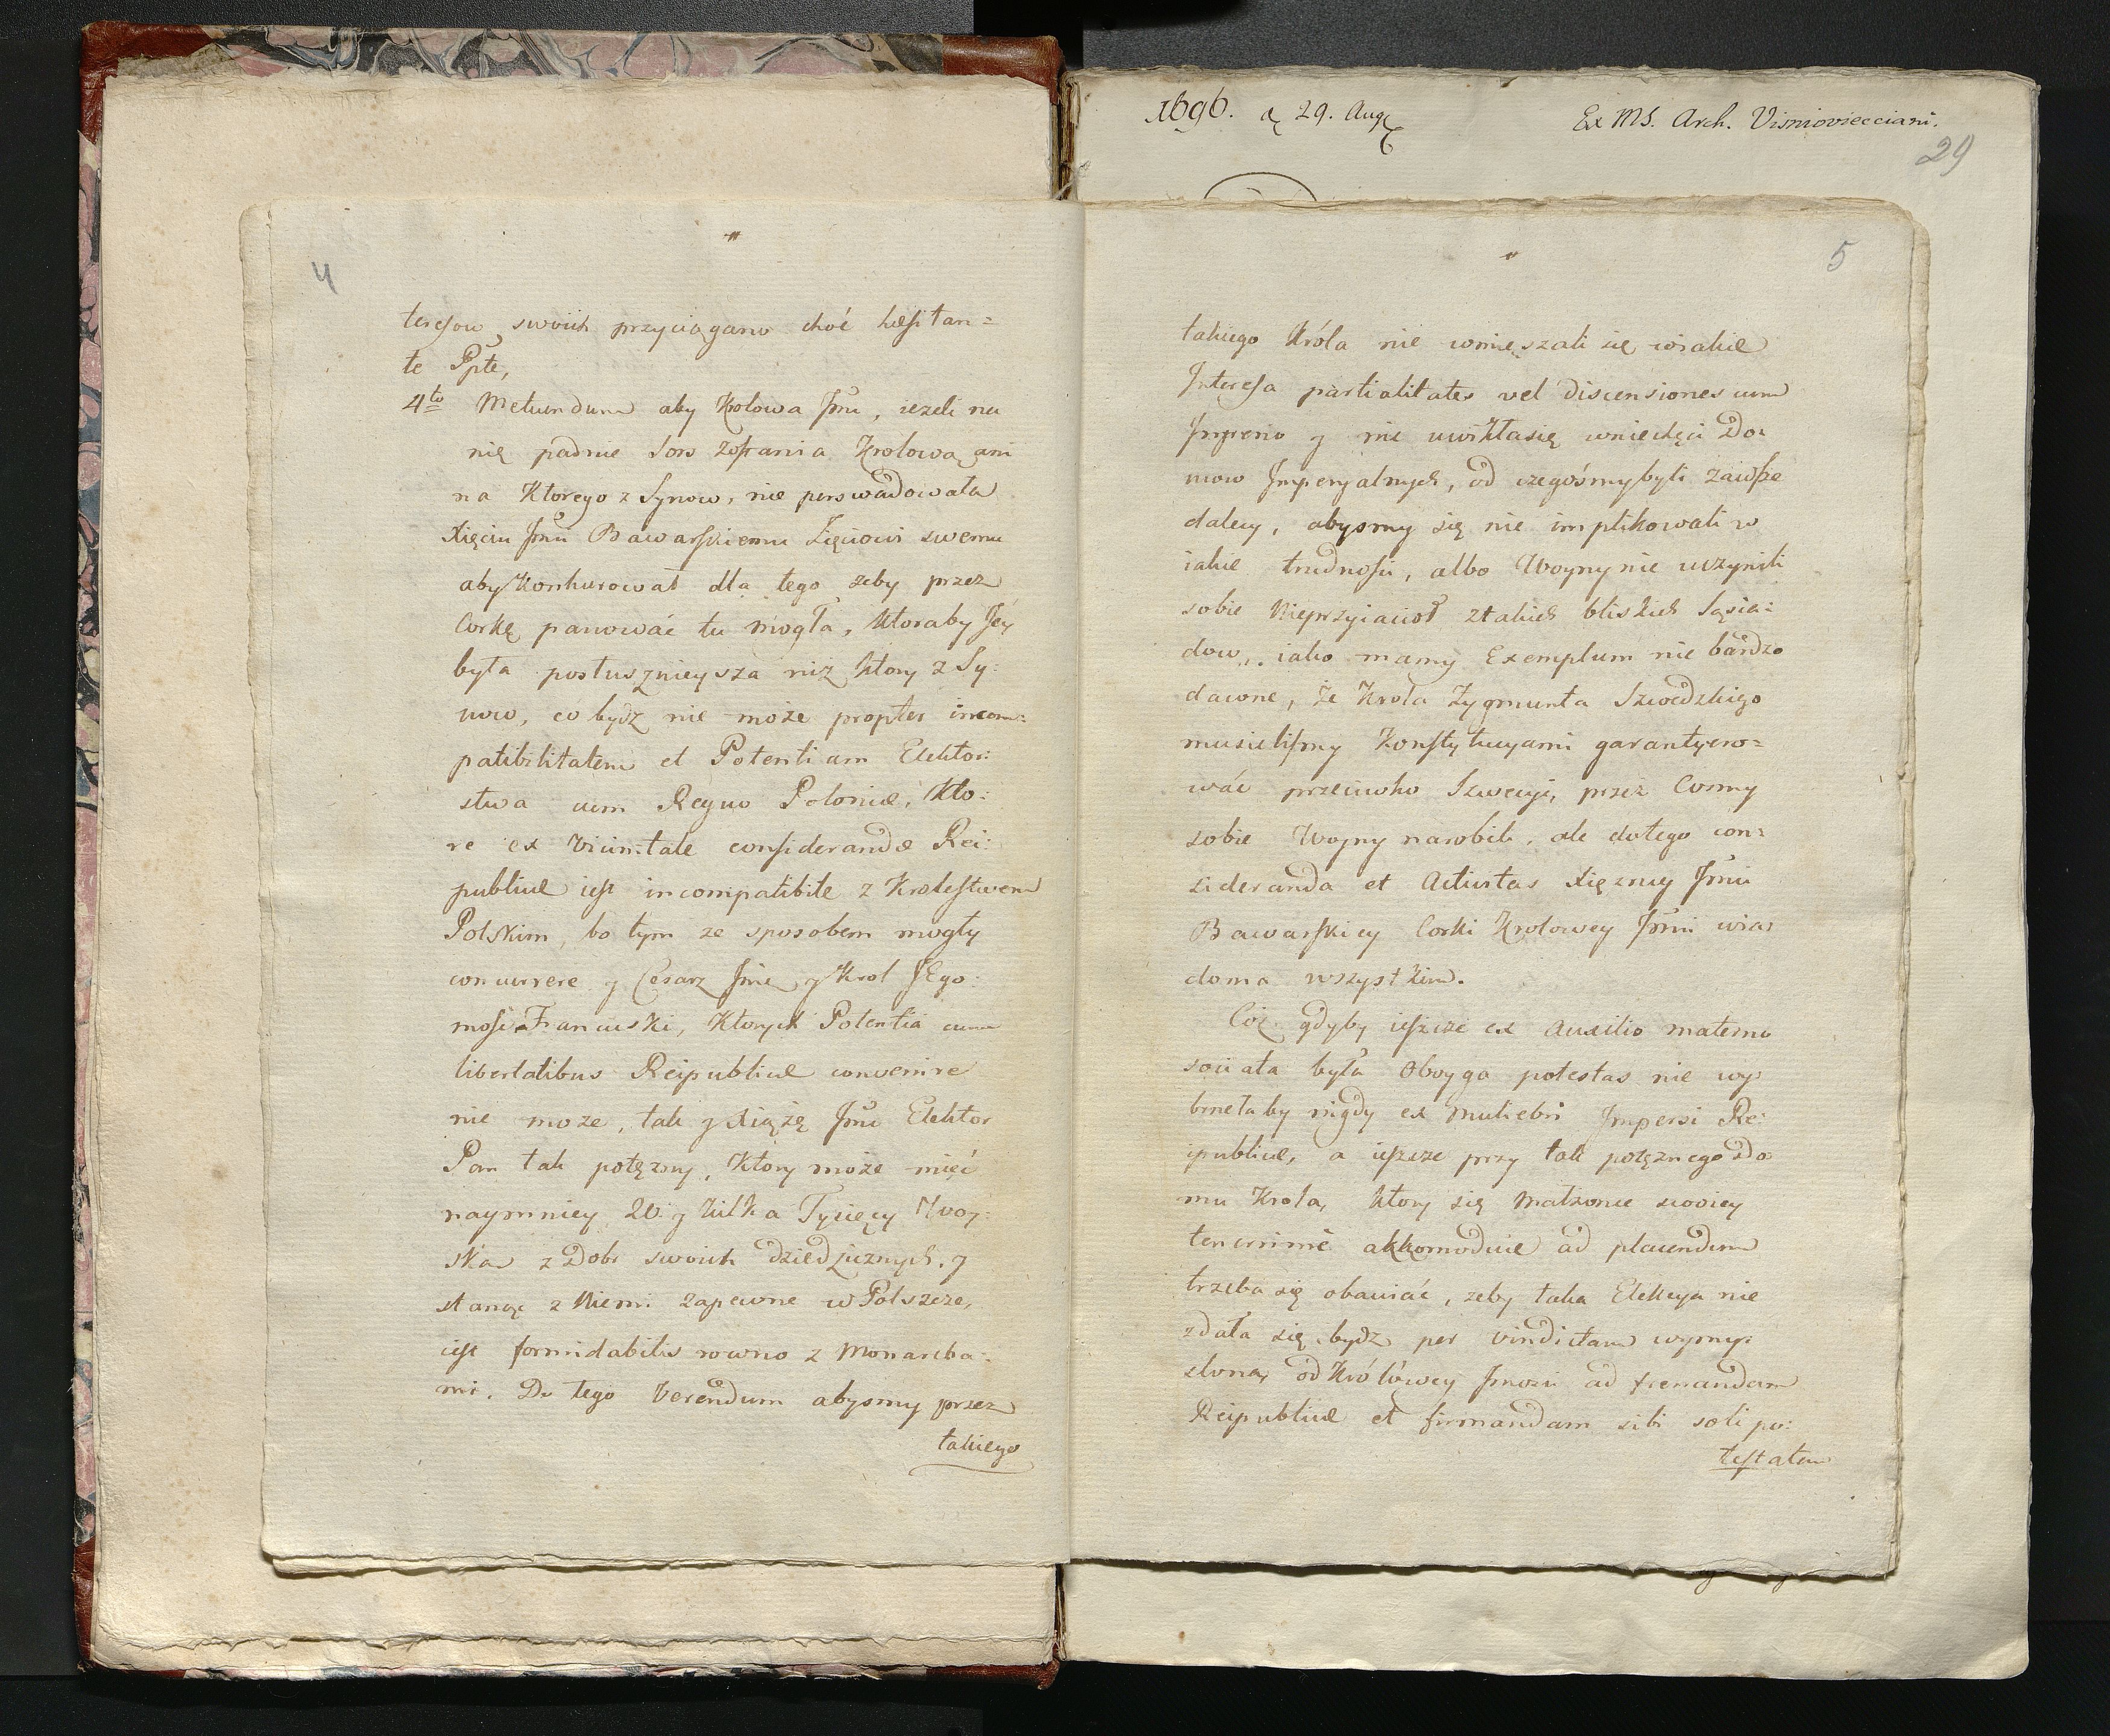 4
teresow swoich przyciągano choć hæsitan=
te Ppte,
4to Metuendum aby Krolowa Jmć, iezeli na
nię padnie Sors zostania Krolową ani
na Ktorego z Synow, nie perswadowała
Xięciu Jmci Bawarskiemu Zięciowi swemu
aby Konkurował dla tego zeby przez
Corkę panować tu mogła, Ktoraby Jey
była posłusznieysza niz ktory z Sy:
now, co bydz nie może propter incom:
patibilitatem et Potentiam Elektor:
stwa cum Regno Poloniæ, Kto:
re ex Vicinitate considerandæ Rei:
publicæ iest incompatibile z Krolestwem
Polskim, bo tym ze sposobem mogły
concurrere y Cesarz Jmć y Krol JEgo:
mość Francuski, Ktorych Potentia cum
libertatibus Reipublicæ convenire
nie moze, tak y Xiążę Jmć Elektor
Pan tak potęzny, Ktory może mieć
naymniey 20. y Kilka Tysięcy Woy:
ska z Dobr swoich dziedzicznych, y
stanąć z Niemi zapewne w Polszcze,
iest formidabilis rowno z Monarcha:
mi. Do tego Verendum abysmy przez
takiego
1696. d 29. Aug
Ex MS. Arch. Visnioviecciani.
29
5
takiego Króla nie wmięszali się wiakie
Interesa partialitates vel discensiones cum
Imperio y nie uwikła się wniechęci Do:
mow Imperyalnych, od czegośmy byli zawsze
dalecy, abysmy się nie implikowali w
iakie trudności, albo Woyny nie uczynili
sobie Nieprzyiacioł z takich bliskich Sąsia:
dow, iako mamy Exemplum nie bardzo
dawne, że Krola Zygmunta Szwedzkiego
musielismy Konstytucyami garantyro=
wać przeciwko Szwecyi, przez Cosmy
sobie Woyny narobili, ale do tego con:
sideranda et Activitas Xięzney Jmci
Bawarskiey Corki Krolowey Jmci wia:
doma wszystkim.
Coż gdyby ieszcze ex auxilio materno
sociata była Oboyga potestas nie wy
brneła by nigdy ex muliebri Imperii Re:
ipublicæ, a ieszcze przy tak potęznego Do:
mu Krola, ktory się Małzonce swoiey
tenerrime akkomoduie ad placendum
trzeba się obawiać, zeby taka Elekcya nie
zdała się bydz per vindictam wymy:
slona, od Królówey Jmości ad frenandam
Reipublicæ et firmandam sibi soli po:
testatem